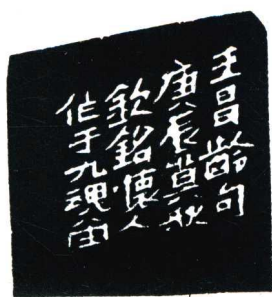 王昌齡句
庚辰莫秋
欽銘懷人
作于九魂宙